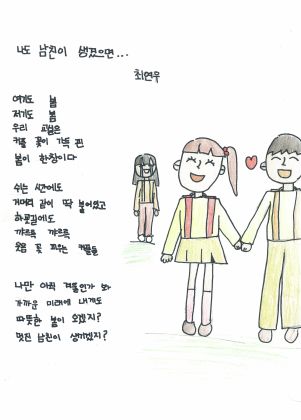 나도 남친이 생겼으면...
최연우
여기도 봄
저기도 봄
우리 교실은
커플 꽃이 가득 핀
봄이 한창이다
쉬는 시간에도
거머리 같이 딱 붙어있고
하굣길에도
까르륵 까르륵
웃음 꽃 피우는 커플들
나만 아직 겨울인가 봐
가까운 미래에 내게도
따뜻한 봄이 오겠지?
멋진 남친이 생기겠지?